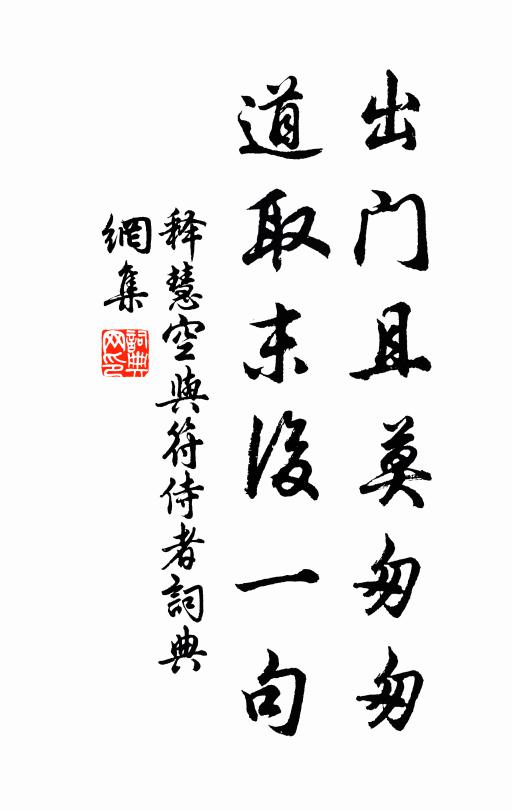 出门且莫匆匆
道取末後一句
释慧空與符侍者詞典
網集
詞典
网印